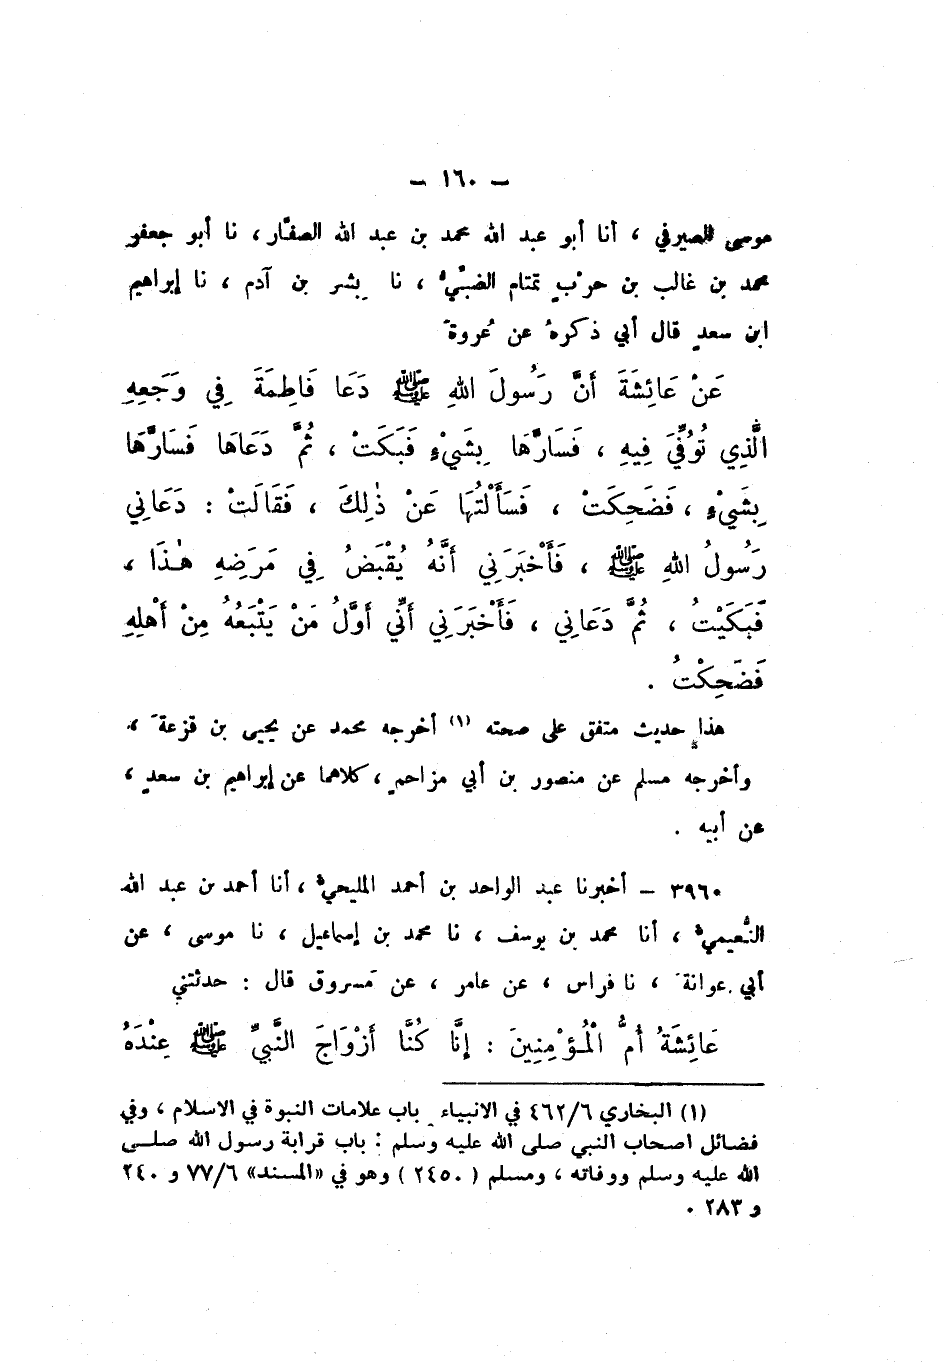 – ١٦٠ –
موسى الصيرفي ، أنا أبو عبد الله محمد بن عبد الله الصفّار، نا أبو جعفر
محمد بن غالب بن حربٍ تمتام الضبّيُّ ، نا بِشر بن آدم ، نا إبراهيم
ابن سعدٍ قال أبي ذكرهُ عن عُروةَ
عَنْ عَائِشَةَ أَنَّ رَسُولَ اللهِ ﷺ دَعَا فَاطِمَةَ فِي وَجَعِهِ
الَّذِي تُوُفِّيَ فِيهِ ، فَسَارَّهَا بِشَيْءٍ فَبَكَتْ ، ثُمَّ دَعَاهَا فَسَارَّهَا
بِشَيْءٍ ، فَضَحِكَتْ ، فَسَأَلْتُهَا عَنْ ذٰلِكَ ، فَقَالَتْ : دَعَانِي
رَسُولُ اللهِ ﷺ ، فَأَخْبَرَنِي أَنَّهُ يُقْبَضُ فِي مَرَضِهِ هٰذَا ،
فَبَكَيْتُ ، ثُمَّ دَعَانِي ، فَأَخْبَرَنِي أَنِّي أَوَّلُ مَنْ يَتْبَعُهُ مِنْ أَهْلِهِ
فَضَحِكْتُ .
هذا حديث متفق على صحته (١) أخرجه محمد عن يحيى بن قزعةَ ،
وأخرجه مسلم عن منصور بن أبي مزاحمٍ ، كلاهما عن إبراهيم بن سعدٍ ،
عن أبيه .
٣٩٦٠ – أخبرنا عبد الواحد بن أحمد المليحيُّ ، أنا أحمد بن عبد الله
النُّعيميُّ ، أنا محمد بن يوسف ، نا محمد بن إسماعيل ، نا موسى ، عن
أبي عوانةَ ، نا فراس ، عن عامر ، عن مَسروق قال : حدثتني
عَائِشَةُ أُمُّ الْمُؤْمِنِينَ : إِنَّا كُنَّا أَزْوَاجَ النَّبِيِّ ﷺ عِنْدَهُ
(١) البخاري ٤٦٢/٦ في الانبياء باب علامات النبوة في الاسلام ، وفي
فضائل اصحاب النبي صلى الله عليه وسلم : باب قرابة رسول الله صلى
الله عليه وسلم ووفاته ، ومسلم ( ٢٤٥٠ ) وهو في «المسند» ٧٧/٦ و ٢٤٠
و ٢٨٣ .